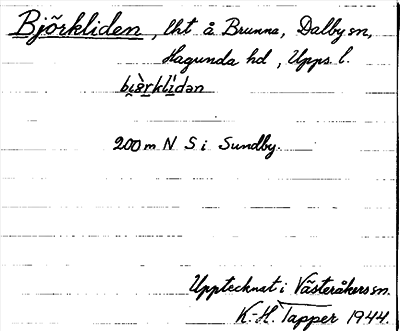 Björkliden, lht å Brunna, Dalby sn,
Hagunda hd, Upps l.
bi̯èrklìdən
200 m N S i Sundby.
Upptecknat i Västeråkers sn.
K.-H. Tapper 1944.